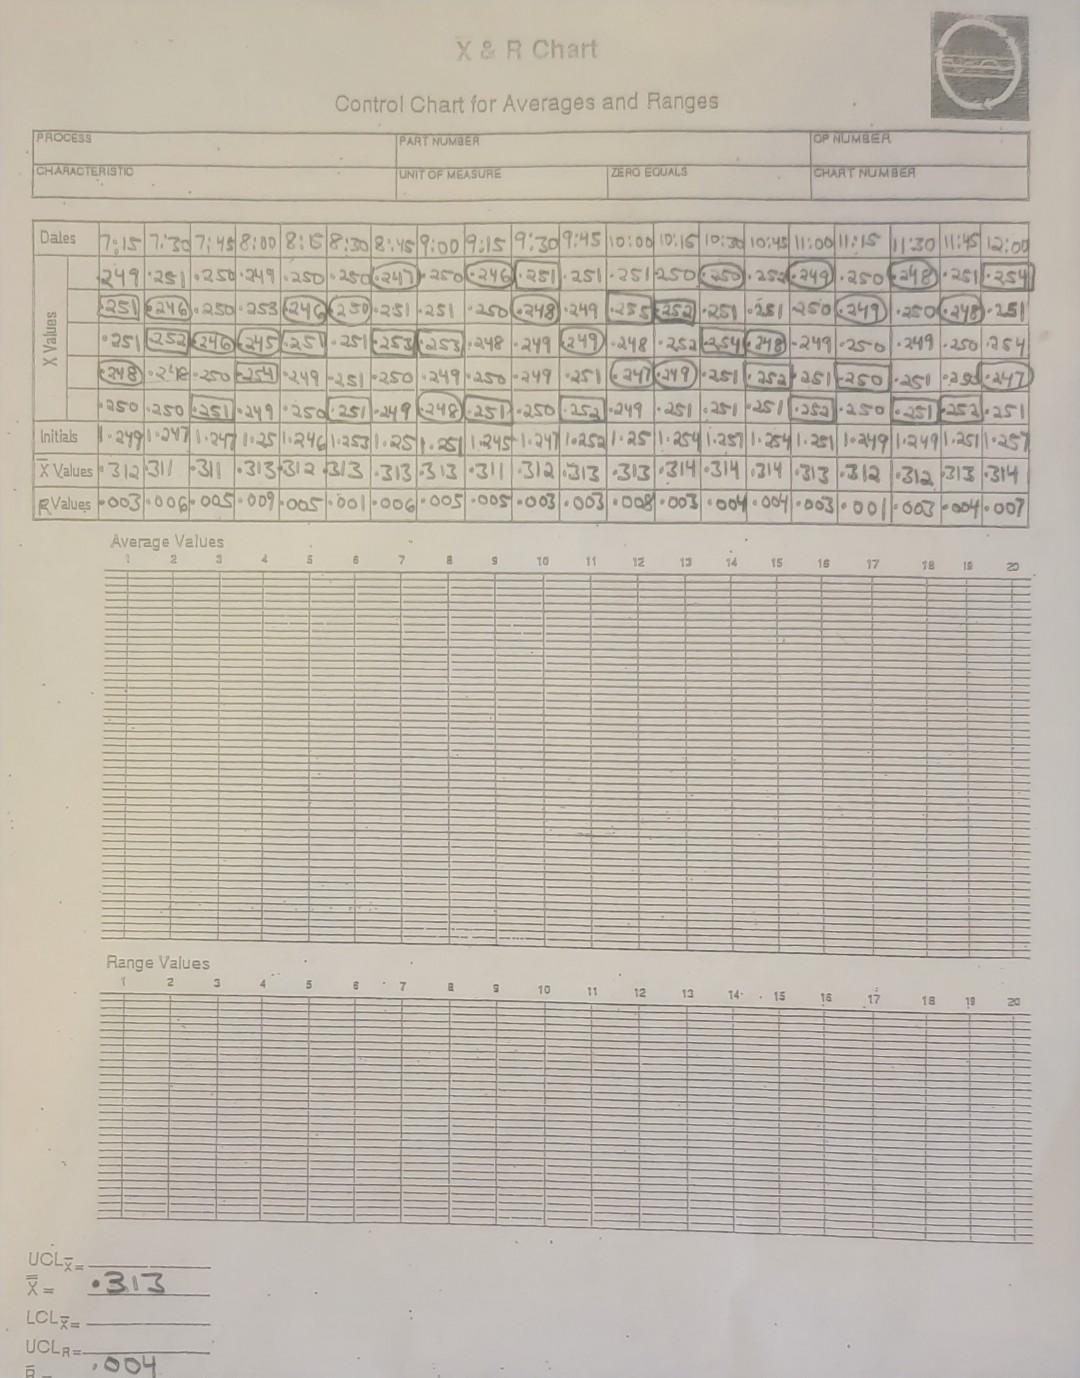 X & R Chart
Control Chart for Averages and Ranges
PROCESS PART NUMBER OP NUMBER
CHARACTERISTIC UNIT OF MEASURE ZERO EQUALS CHART NUMBER
Dales 7:15 7:30 7:45 8:00 8:15 8:30 8:45 9:00 9:15 9:30 9:45 10:00 10:15 10:30 10:45 11:00 11:15 11:30 11:45 12:00
X Values
.249 .251 .250 .249 .250 .250 .247 .250 .246 .251 .251 .251 .250 .250 .252 .249 .250 .248 .251 .254
.251 .246 .250 .253 .246 .250 .251 .251 .250 .248 .249 .255 .252 .251 .251 .250 .249 .250 .248 .251
.251 .252 .246 .245 .251 .251 .253 .253 .248 .249 .249 .248 .252 .254 .248 .249 .250 .249 .250 .254
.248 .248 .250 .254 .249 .251 .250 .249 .250 .249 .251 .247 .249 .251 .252 .251 .250 .251 .250 .247
.250 .250 .251 .249 .250 .251 .249 .248 .251 .250 .252 .249 .251 .251 .251 .252 .250 .251 .252 .251
Initials 1.249 1.247 1.247 1.25 1.246 1.253 1.25 1.251 1.245 1.247 1.252 1.25 1.254 1.257 1.254 1.251 1.249 1.249 1.251 1.257
X̄ Values .312 .311 .311 .313 .312 .313 .313 .313 .311 .312 .313 .313 .314 .314 .314 .313 .312 .312 .313 .314
R Values .003 .006 .005 .009 .005 .001 .006 .005 .005 .003 .003 .008 .003 .004 .004 .003 .001 .003 .004 .007
Average Values
1 2 3 4 5 6 7 8 9 10 11 12 13 14 15 16 17 18 19 20
Range Values
1 2 3 4 5 6 7 8 9 10 11 12 13 14 15 16 17 18 19 20
UCLX̄=
X̿= .313
LCLX̄=
UCLR=
R̄ .004